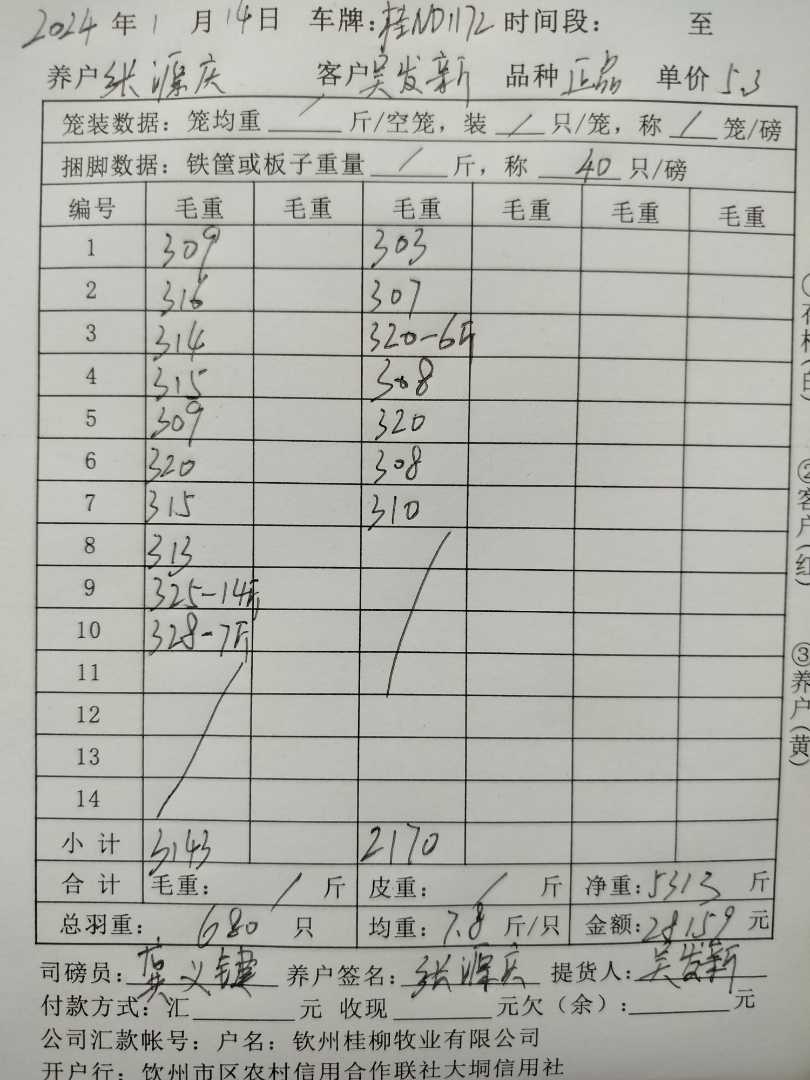 2024 年 1 月 14 日 车牌:桂ND1172 时间段: 至
养户 张源庆 客户 吴发新 品种 正品 单价 5.3
笼装数据: 笼均重 / 斤/空笼，装 / 只/笼，称 / 笼/磅
捆脚数据: 铁筐或板子重量 / 斤，称 40 只/磅
编号 毛重 毛重 毛重 毛重 毛重 毛重
1 309 303
2 316 307
3 314 320-6斤
4 315 308
5 309 320
6 320 308
7 315 310
8 313
9 325-14斤
10 328-7斤
11
12
13
14
小计 3143 2170
合计 毛重: / 斤 皮重: / 斤 净重:5313 斤
总羽重: 680 只 均重: 7.8 斤/只 金额:28159 元
司磅员: 莫义键 养户签名: 张源庆 提货人: 吴发新
付款方式: 汇 元 收现 元欠(余): 元
公司汇款帐号: 户名: 钦州桂柳牧业有限公司
开户行: 钦州市区农村信用合作联社大垌信用社
②客户(红)
③养户(黄)